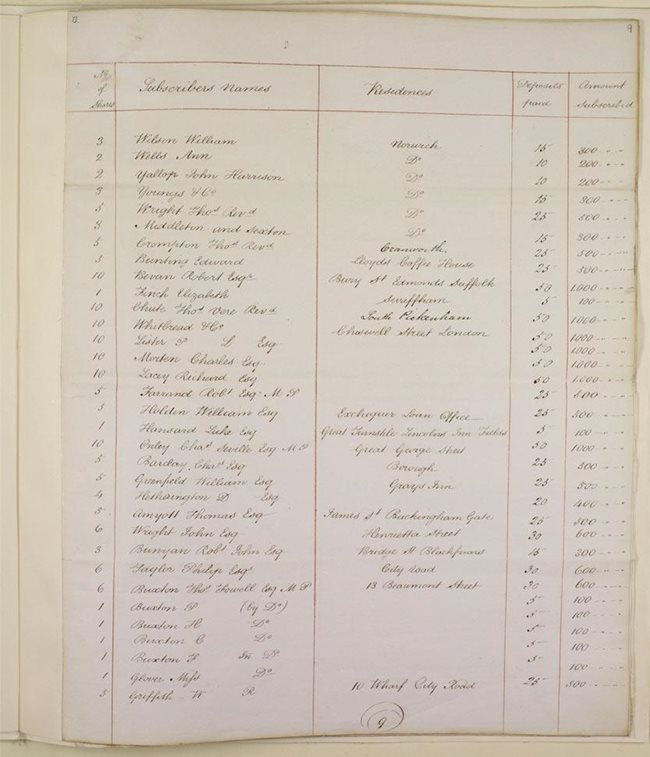 9
No of Shares Subscribers Names Residences Deposits paid Amount Subscribed
3 Wilson William Norwich 15 300
2 Wells Ann Do 10 200
2 Yallop John Harrison Do 10 200
3 Youngs & Co Do 15 300
5 Wright Thos Revd Do 25 500
3 Middleton and Sexton Do 15 300
5 Crompton Thos Revd Cranworth 25 500
5 Bunting Edward Lloyds Coffee House 25 500
10 Bevan Robert Esqr Bury St Edmonds Suffolk 50 1000
1 Finch Elizabeth Swaffham 5 100
10 Chute Thos Vere Revd South Pickenham 50 1000
10 Whitbread & Co Chiswell Street London 50 1000
10 Lister P L Esq 50 1000
10 Morten Charles Esq 50 1000
10 Lacey Richard Esq 50 1000
5 Farrand Robt Esq M P 25 500
5 Holden William Esq Exchequer Loan Office 25 500
1 Hansard Luke Esq Great Turnstile Lincolns Inn Fields 5 100
10 Onley Chas Seville Esq M P Great George Street 50 1000
5 Barclay Chas Esq Borough 25 500
5 Greenfield William Esq Grays Inn 25 500
4 Hetherington D Esq 20 400
5 Amyott Thomas Esq James St Buckingham Gate 25 500
6 Wright John Esq Henrietta Street 30 600
3 Bunyan Robt John Esq Bridge St Blackfriars 15 300
6 Taylor Philip Esqr City Road 30 600
6 Buxton Thos Fowell Esq M P 13 Beaumont Street 30 600
1 Buxton P (by Do) 5 100
1 Buxton H Do 5 100
1 Buxton C Do 5 100
1 Buxton F In Do 5 100
1 Glover Miss Do 5 100
5 Griffith W R 10 Wharf City Road 25 500
9